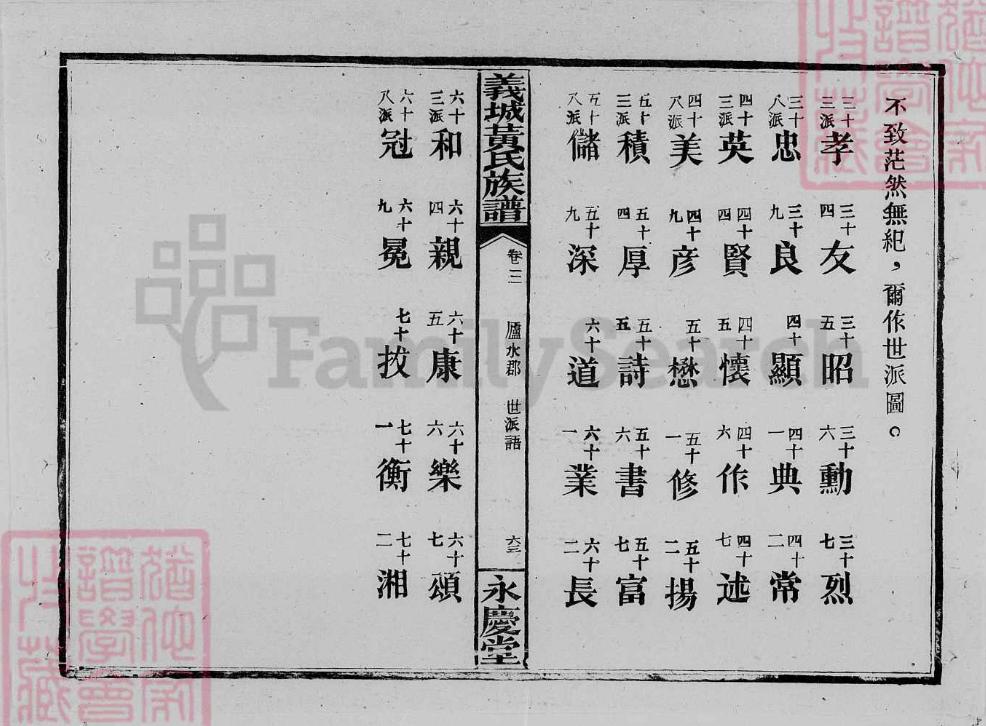 不致茫然無紀，爾作世派圖。
三十三派孝 三十四友 三十五昭 三十六勳 三十七烈
三十八派忠 三十九良 四十顯 四十一典 四十二常
四十三派英 四十四賢 四十五懷 四十六作 四十七述
四十八派美 四十九彦 五十懋 五十一修 五十二揚
五十三派積 五十四厚 五十五詩 五十六書 五十七富
五十八派儲 五十九深 六十道 六十一業 六十二長
義城黃氏族譜 卷二 廬水郡 世派語 六三 永慶堂
六十三派和 六十四親 六十五康 六十六樂 六十七頌
六十八派冠 六十九冕 七十拔 七十一衡 七十二湘
FamilySearch